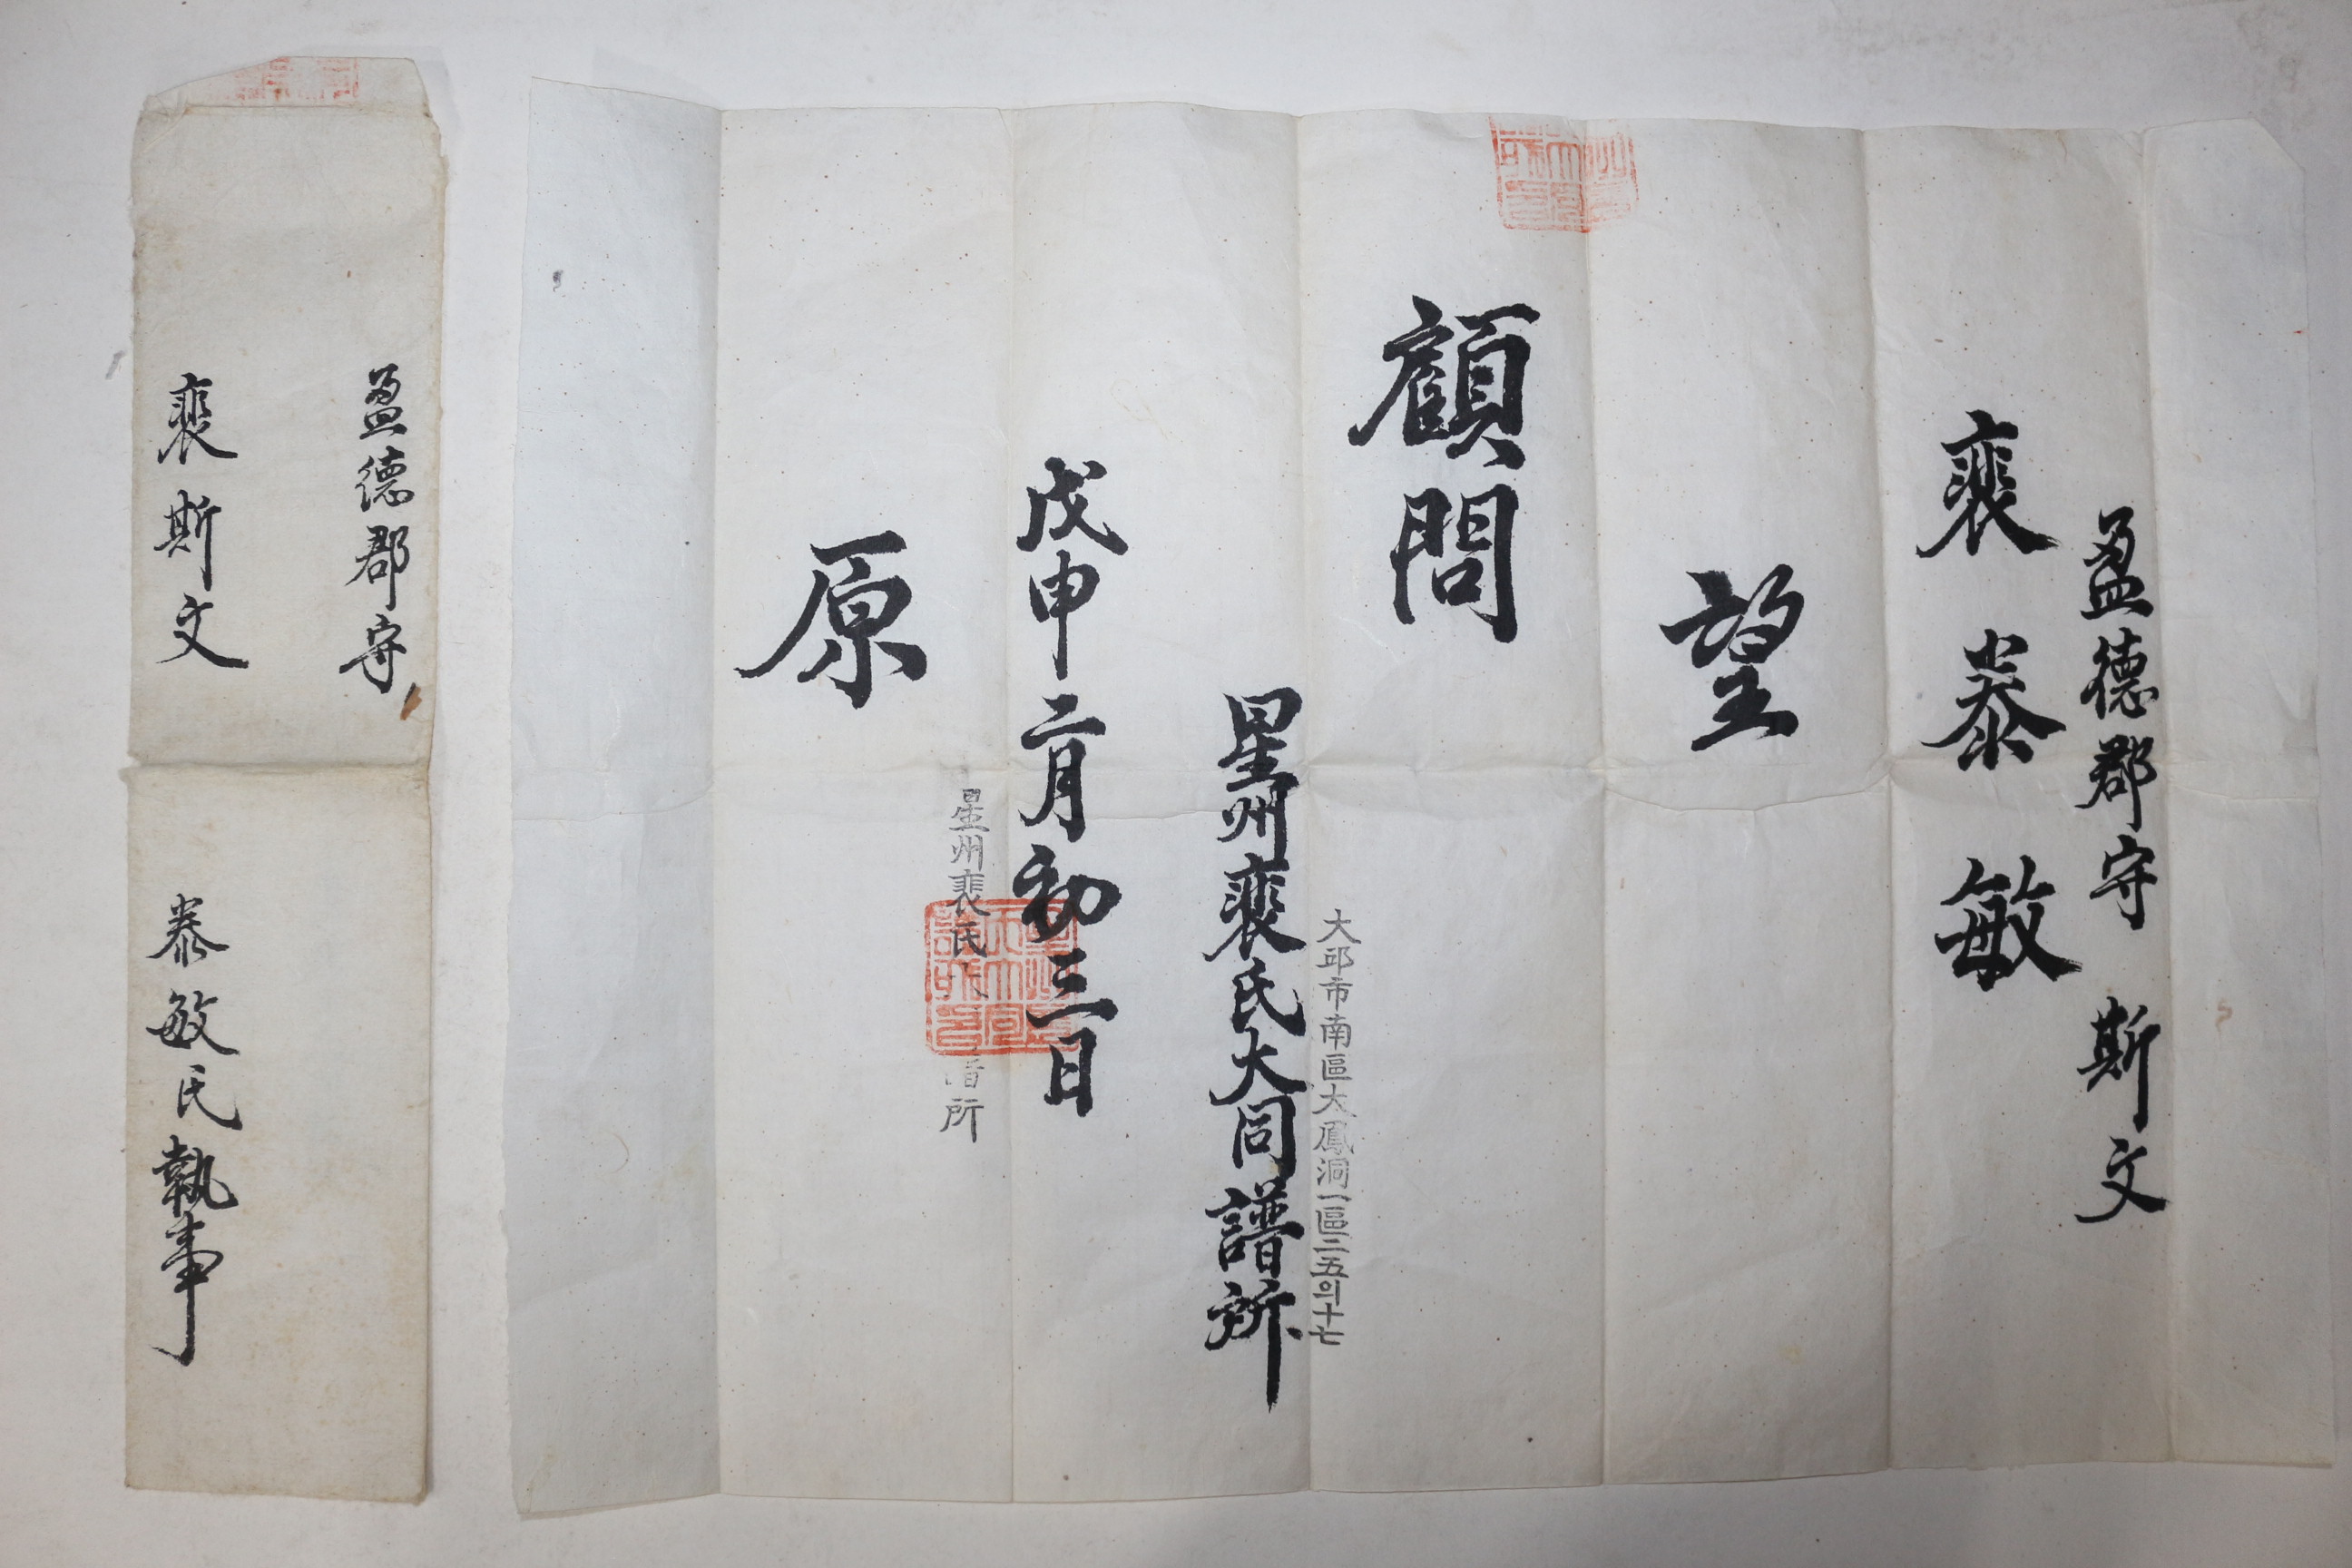 盈德郡守 斯文
裵泰敏
望
顧問
大邱市南區大鳳洞一區二五의十七
星州裵氏大同譜所
戊申二月初三日
星州裵氏大 譜所
原
盈德郡守
裵斯文 泰敏氏執事